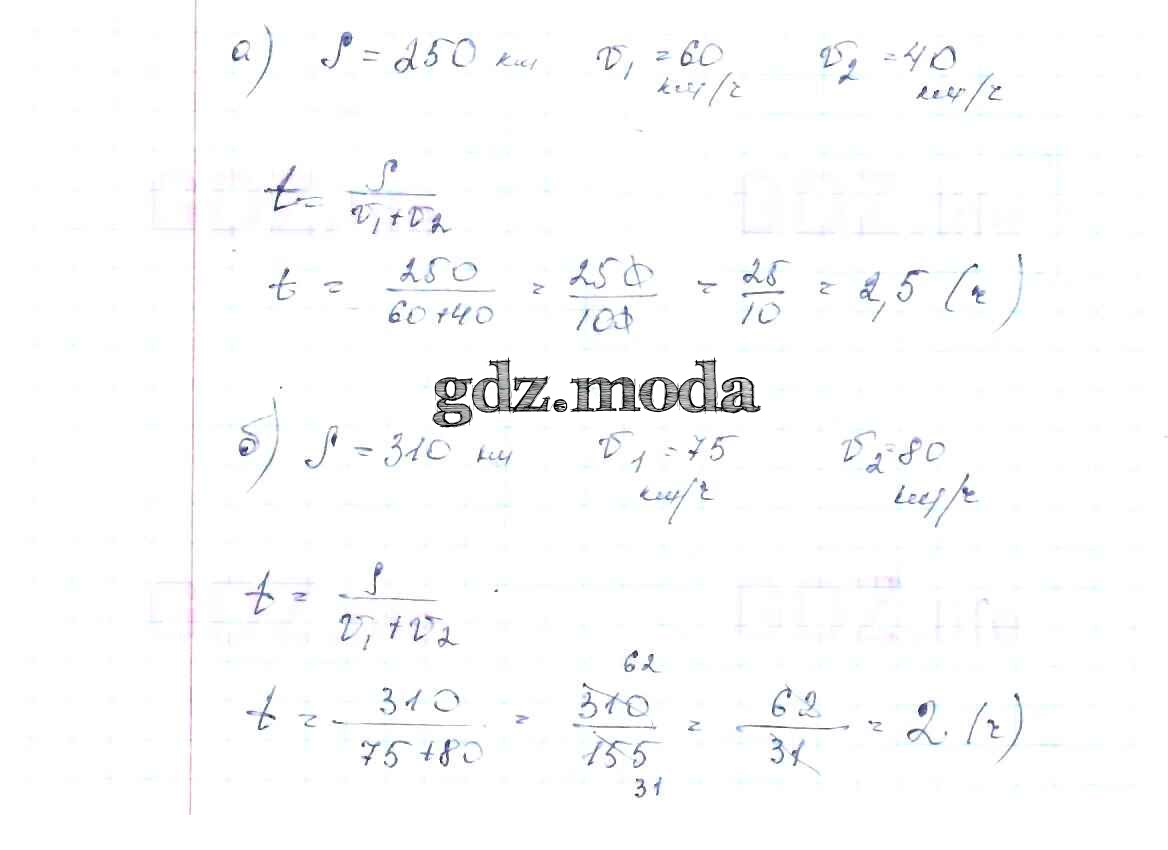 а) S = 250 км v₁ = 60 км/ч v₂ = 40 км/ч
t = S/(v₁+v₂)
t = 250/(60+40) = 250/100 = 25/10 = 2,5 (ч)
gdz.moda
б) S = 310 км v₁ = 75 км/ч v₂ = 80 км/ч
t = S/(v₁+v₂)
62
t = 310/(75+80) = 310/155 = 62/31 = 2. (ч)
31